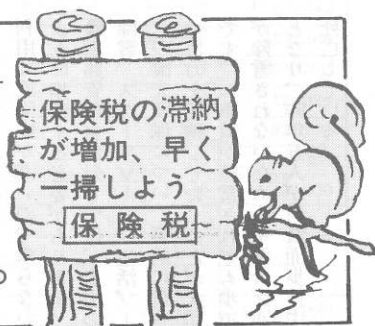 保険税の滞納
が増加、早く
一掃しよう
保険税